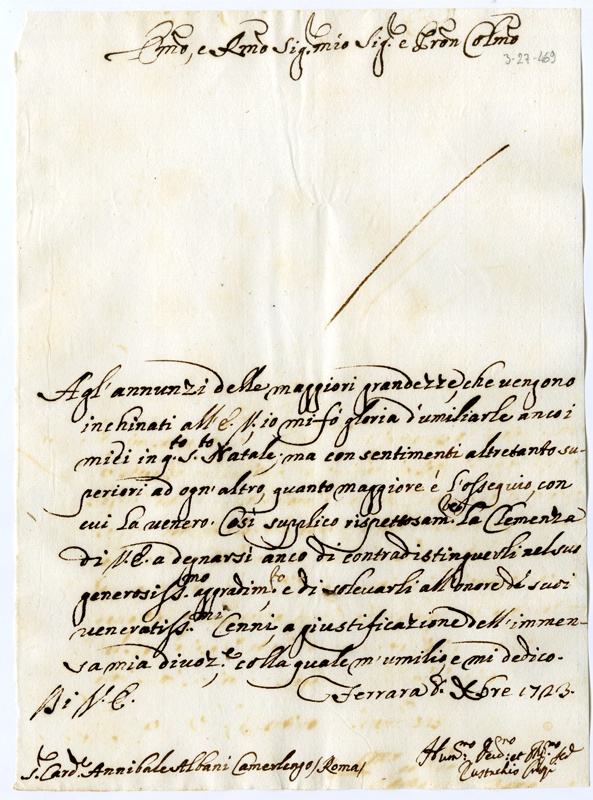 Emo, e Rmo Sig. mio Sig. e Pron Colmo
3-27-469
Agl'annunzi delle maggiori grandezze, che vengono
inchinati all'E. V., io mi fò gloria d'umiliarle anco i
miei in q.to S.to Natale; ma con sentimenti altretanto su-
periori ad ogn'altro, quanto maggiore è l'ossequio, con
cui la venero. Così supplico rispettosam.te la Clemenza
di V. E. a degnarsi anco di contradistinguerli nel suo
generosiss.mo aggradim.to e di solevarli all'onore de' suoi
veneratiss.mi Cenni, a giustificazione dell'immen-
sa mia divoz.e colla quale m'umilio, e mi dedico.
Di V. E. Ferrara Xbre 1723.
S. Card. Annibale Albani Camerlengo / Roma /
Hum.mo